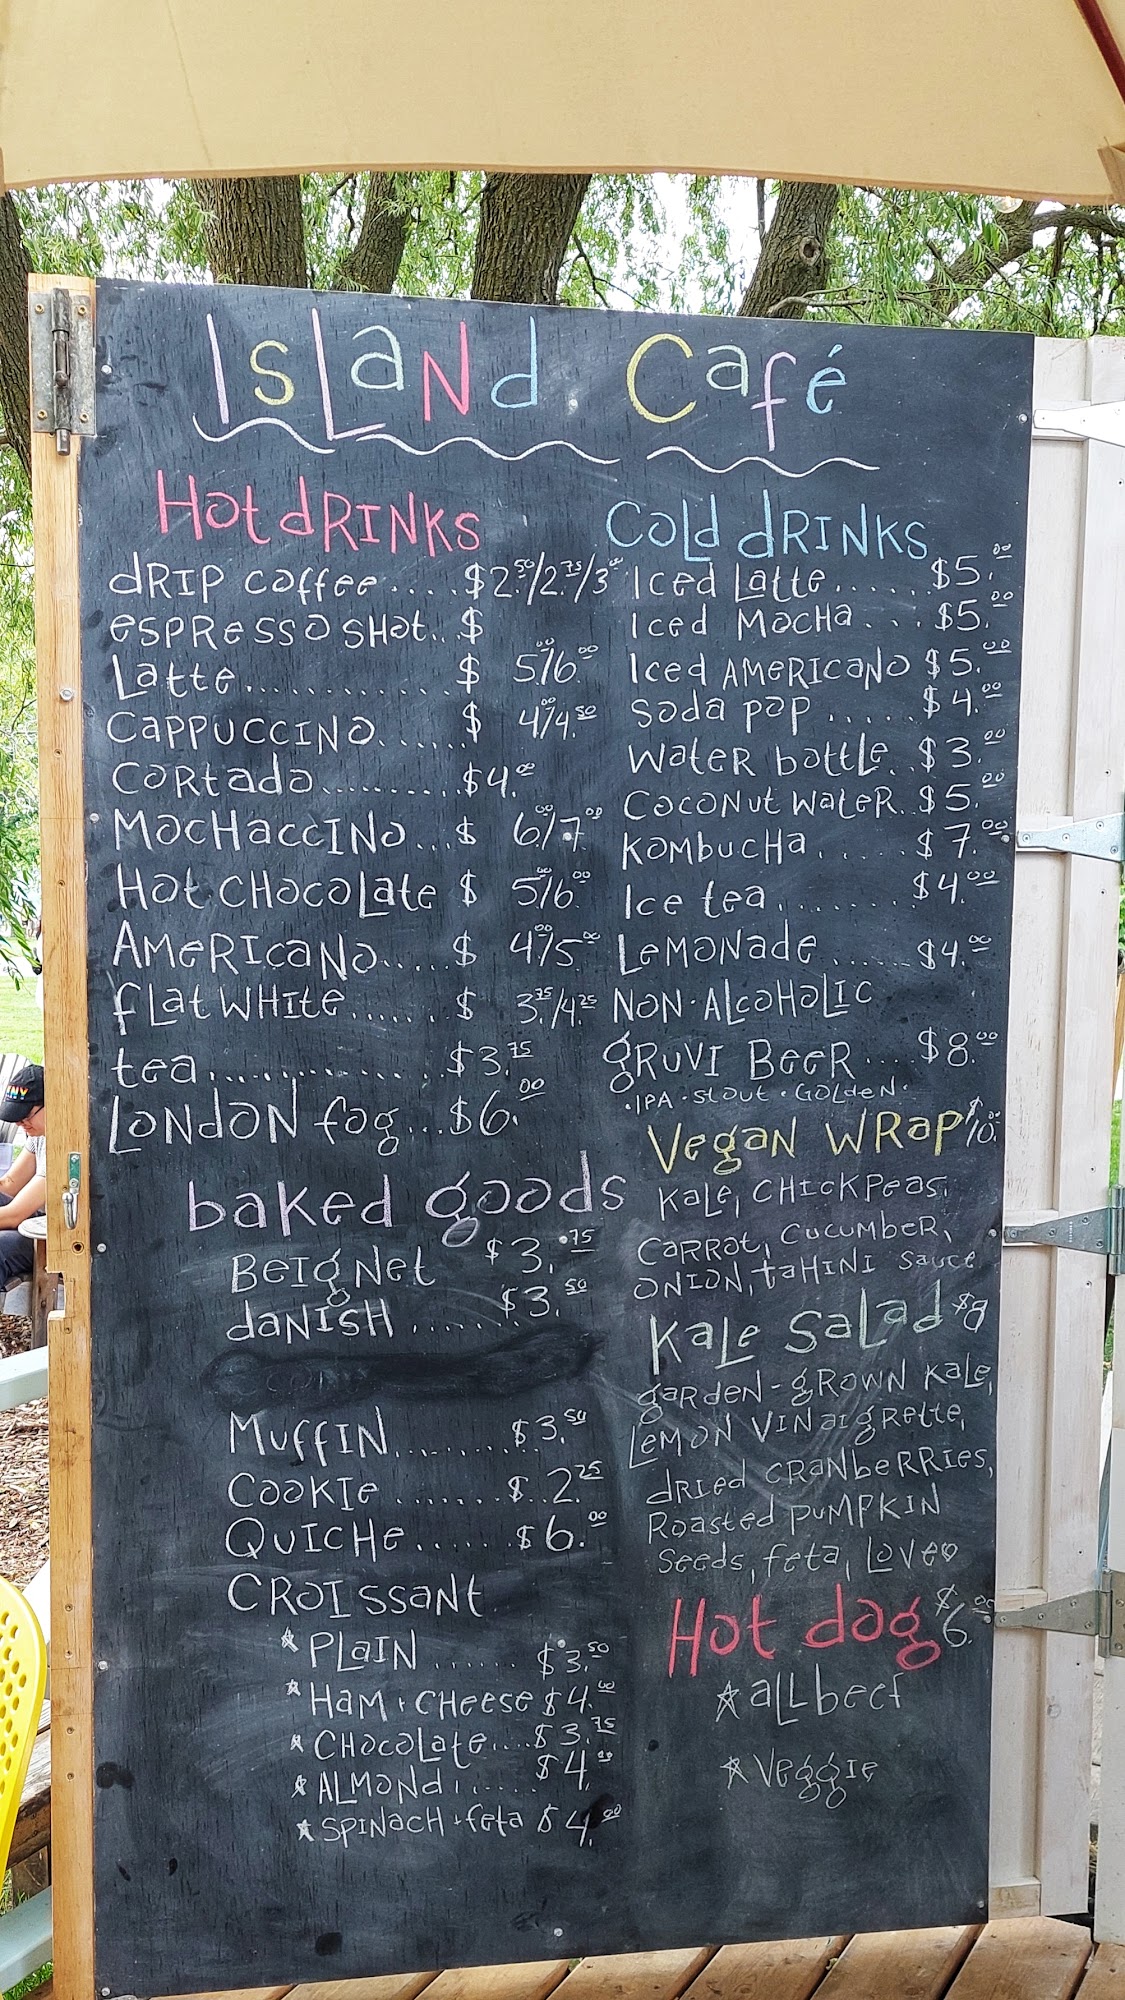 Island Café
Hot drinks
drip coffee....$2.50/2.75/3.00
espresso shot..$
Latte............. $ 5.00/6.00
Cappuccino...... $ 4.00/4.50
Cortado..........$4.00
Mochaccino... $ 6.00/7.00
Hot chocolate $ 5.00/6.00
Americano..... $ 4.00/5.00
flat white...... $ 3.75/4.25
tea..............$3.75
London fog...$6.00
baked goods
Beignet $3.75
danish ..... $3.50
Muffin........ $3.50
Cookie ....... $2.25
Quiche...... $6.00
Croissant
* Plain ...... $3.50
* Ham + cheese $4.00
* chocolate....$3.75
* Almond ...... $4.00
* spinach + feta $4.00
Cold drinks
Iced Latte...... $5.00
Iced Mocha... $5.00
Iced Americano $5.00
Soda pop ..... $4.00
Water bottle.. $3.00
Coconut water..$5.00
Kombucha...... $7.00
Ice tea........ $4.00
Lemonade ...... $4.00
Non-Alcoholic
gruvi Beer ... $8.00
• IPA • stout • Golden •
Vegan wrap $10.00
Kale, chickpeas,
carrot, cucumber,
onion, tahini sauce
Kale salad $8
garden-grown kale,
Lemon vinaigrette,
dried cranberries,
Roasted pumpkin
seeds, feta, Love♡
Hot dog $6.00
☆ all beef
☆ Veggie